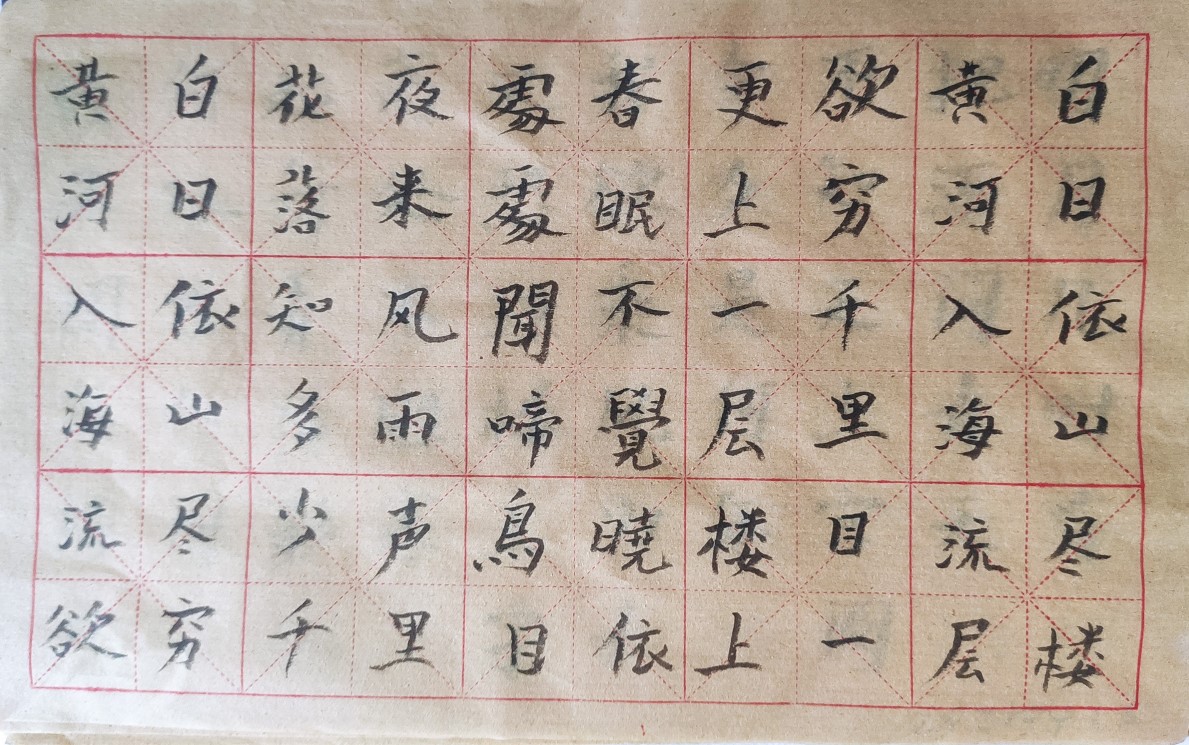 白日依山尽楼
黄河入海流层
欲穷千里目一
更上一层楼上
春眠不覺曉依
處處聞啼鳥目
夜来风雨声里
花落知多少千
白日依山尽穷
黄河入海流欲